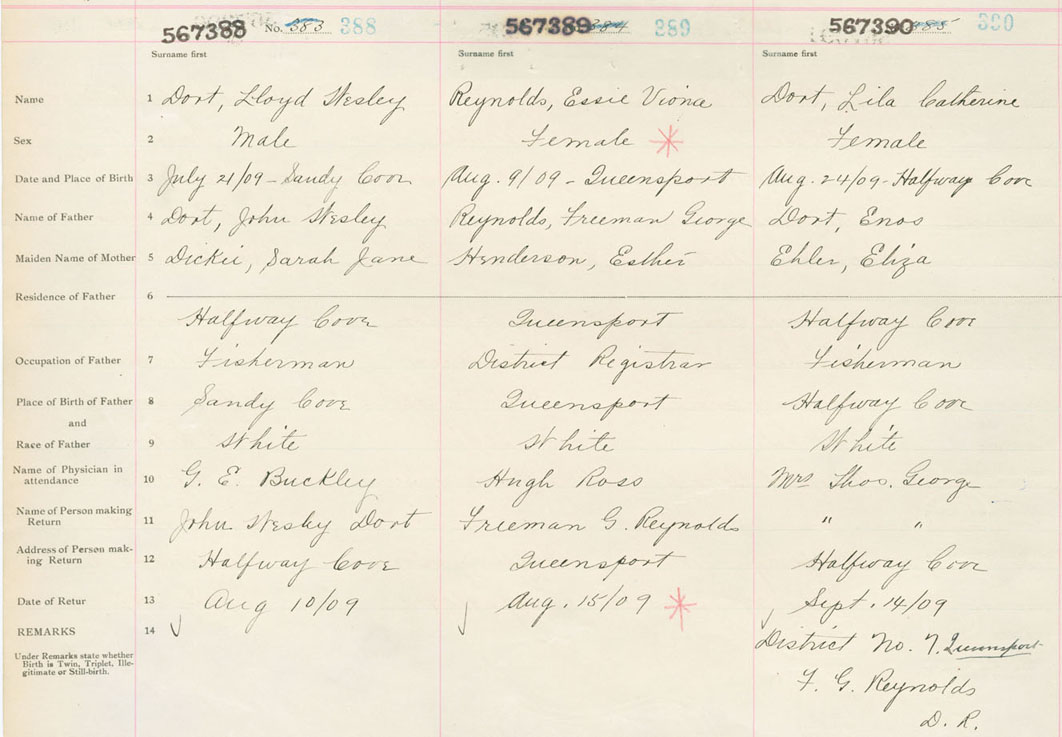 567388 No. 383 388
567389 384 389
567390 385 390
Surname first Surname first Surname first
Name 1 Dort, Lloyd Wesley Reynolds, Essie Viona Dort, Lila Catherine
Sex 2 Male Female Female
Date and Place of Birth 3 July 21/09 - Sandy Cove Aug. 9/09 - Queensport Aug. 24/09 - Halfway Cove
Name of Father 4 Dort, John Wesley Reynolds, Freeman George Dort, Enos
Maiden Name of Mother 5 Dickie, Sarah Jane Henderson, Esther Ehler, Eliza
Residence of Father 6
Halfway Cove Queensport Halfway Cove
Occupation of Father 7 Fisherman District Registrar Fisherman
Place of Birth of Father 8 Sandy Cove Queensport Halfway Cove
and
Race of Father 9 White White White
Name of Physician in
attendance 10 G. E. Buckley Hugh Ross Mrs Thos. George
Name of Person making
Return 11 John Wesley Dort Freeman G. Reynolds " "
Address of Person mak-
ing Return 12 Halfway Cove Queensport Halfway Cove
Date of Retur 13 Aug 10/09 Aug. 15/09 Sept. 14/09
REMARKS 14 District No. 7. Queensport
Under Remarks state whether
Birth is Twin, Triplet, Ille-
gitimate or Still-birth.
F. G. Reynolds
D. R.